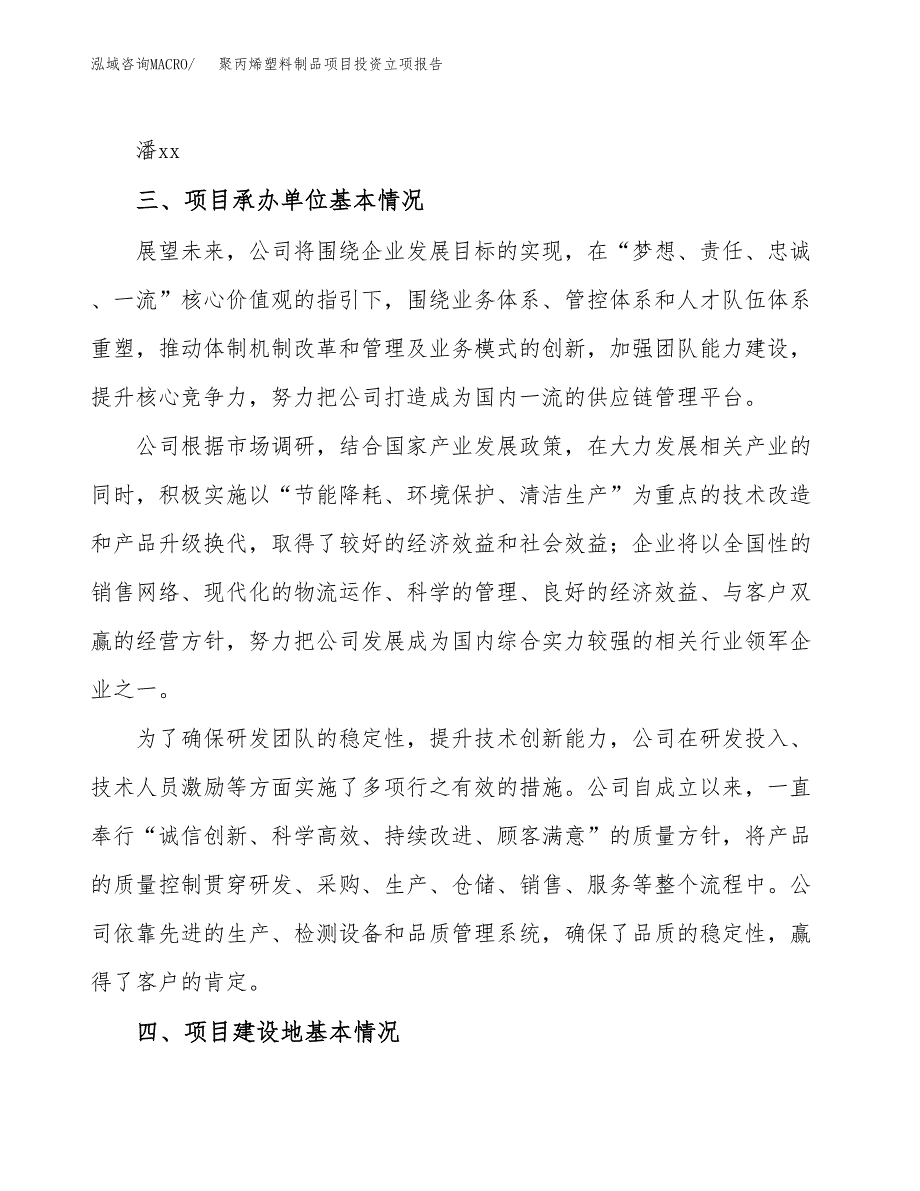 泓域咨询MACRO/ 聚丙烯塑料制品项目投资立项报告
潘xx
三、项目承办单位基本情况
展望未来，公司将围绕企业发展目标的实现，在“梦想、责任、忠诚
、一流”核心价值观的指引下，围绕业务体系、管控体系和人才队伍体系
重塑，推动体制机制改革和管理及业务模式的创新，加强团队能力建设，
提升核心竞争力，努力把公司打造成为国内一流的供应链管理平台。
公司根据市场调研，结合国家产业发展政策，在大力发展相关产业的
同时，积极实施以“节能降耗、环境保护、清洁生产”为重点的技术改造
和产品升级换代，取得了较好的经济效益和社会效益；企业将以全国性的
销售网络、现代化的物流运作、科学的管理、良好的经济效益、与客户双
赢的经营方针，努力把公司发展成为国内综合实力较强的相关行业领军企
业之一。
为了确保研发团队的稳定性，提升技术创新能力，公司在研发投入、
技术人员激励等方面实施了多项行之有效的措施。公司自成立以来，一直
奉行“诚信创新、科学高效、持续改进、顾客满意”的质量方针，将产品
的质量控制贯穿研发、采购、生产、仓储、销售、服务等整个流程中。公
司依靠先进的生产、检测设备和品质管理系统，确保了品质的稳定性，赢
得了客户的肯定。
四、项目建设地基本情况